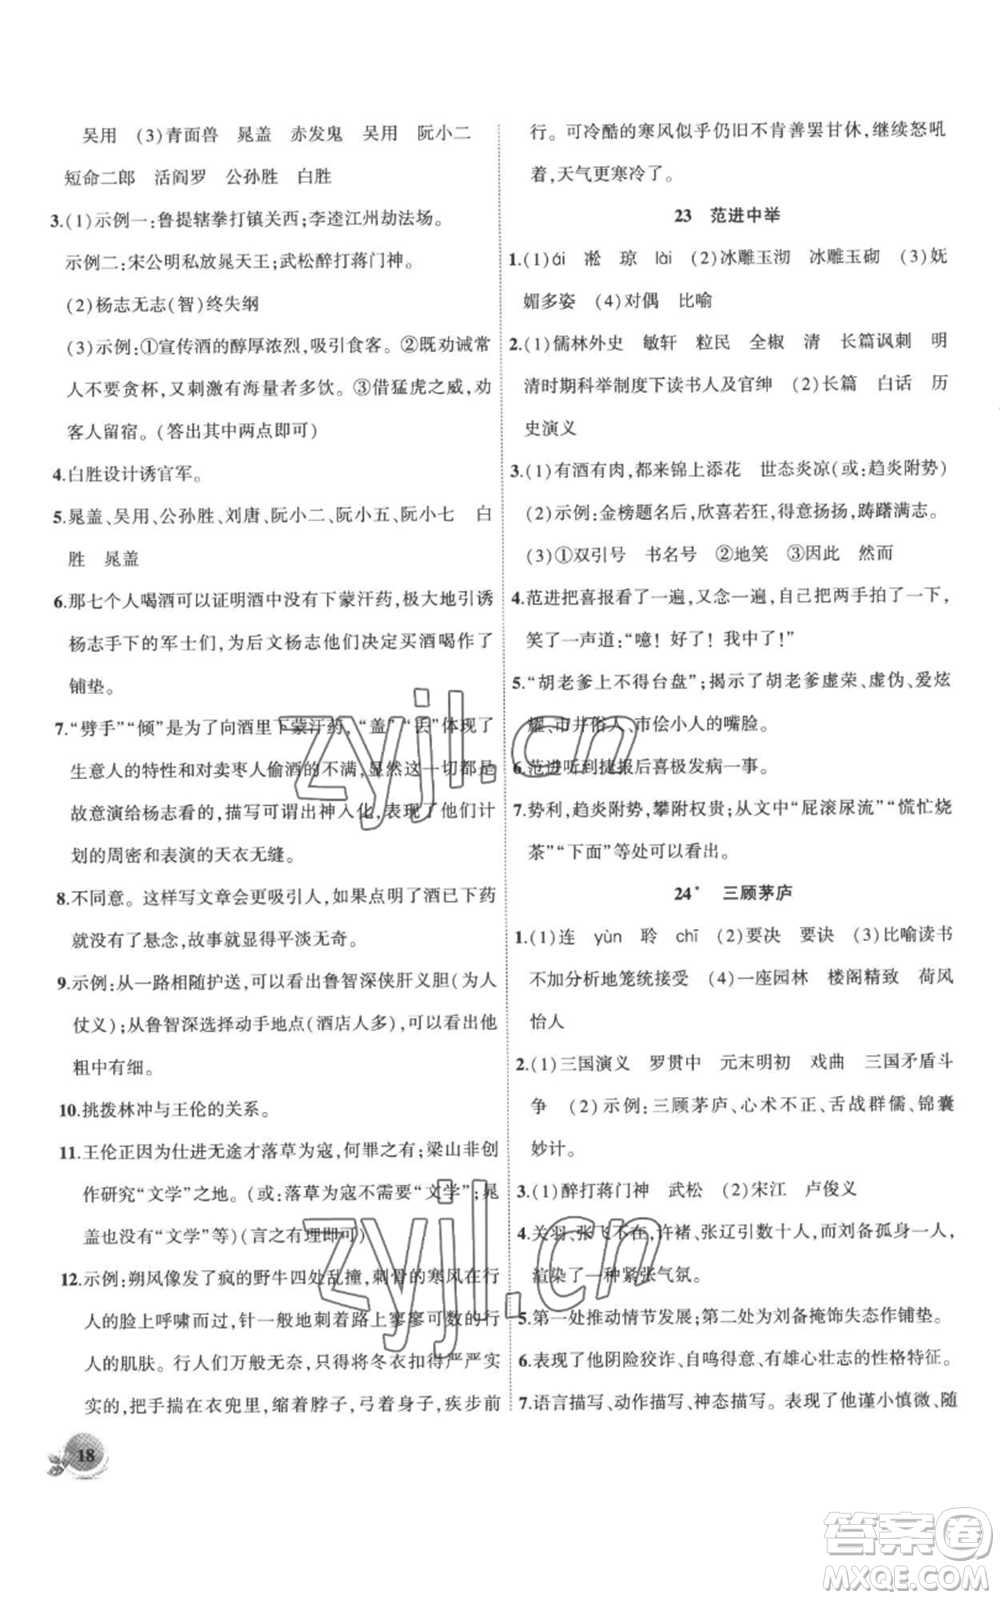 吴用　(3)青面兽　晁盖　赤发鬼　吴用　阮小二
短命二郎　活阎罗　公孙胜　白胜
3.(1)示例一:鲁提辖拳打镇关西;李逵江州劫法场。
示例二:宋公明私放晁天王;武松醉打蒋门神。
(2)杨志无志(智)　终失纲
(3)示例:①宣传酒的醇厚浓烈,吸引食客。②既劝诫常
人不要贪杯,又刺激有海量者多饮。③借猛虎之威,劝
客人留宿。(答出其中两点即可)
4.白胜设计诱官军。
5.晁盖、吴用、公孙胜、刘唐、阮小二、阮小五、阮小七　白
胜　晁盖
6.那七个人喝酒可以证明酒中没有下蒙汗药,极大地引诱
杨志手下的军士们,为后文杨志他们决定买酒喝作了
铺垫。
7.“劈手”“倾”是为了向酒里下蒙汗药,“盖”“丢”体现了
生意人的特性和对卖枣人偷酒的不满,显然这一切都是
故意演给杨志看的,描写可谓出神入化,体现了他们计
划的周密和表演的天衣无缝。
8.不同意。这样写文章会更吸引人,如果点明了酒中下药
就没有了悬念,故事就显得平淡无奇。
9.示例:从一路相随护送,可以看出鲁智深侠肝义胆(或
仗义);从鲁智深选择动手地点(酒店人多),可以看出他
粗中有细。
10.挑拨林冲与王伦的关系。
11.王伦正因为仕进无途才落草为寇,何罪之有;梁山非创
作研究“文学”之地。(或:落草为寇不需要“文学”;晁
盖也没有“文学”等)(言之有理即可)
12.示例:朔风像发了疯的野牛四处乱撞,刺骨的寒风在行
人的脸上呼啸而过,针一般刺在路上寥寥可数的行
人的肌肤。行人们万般无奈,只得将冬衣扣得严严实
实的,把手揣在衣兜里,缩着脖子,弓着身子,疾步前
行。可冷酷的寒风似乎仍旧不肯善罢甘休,继续怒吼
着,天气更寒冷了。
23　范进中举
1.(1)ái　凇　琼　lài　(2)冰雕玉沏　冰雕玉砌　(3)妩
媚多姿　(4)对偶　比喻
2.(1)儒林外史　敏轩　粒民　全椒　清　长篇讽刺　明
清时期科举制度下读书人及官绅　(2)长篇　白话　历
史演义
3.(1)有酒有肉,都来锦上添花　世态炎凉(或:趋炎附势)
(2)示例:金榜题名后,欣喜若狂,得意扬扬,踌躇满志。
(3)①双引号　书名号　②地笑　③因此　然而
4.范进把喜报看了一遍,又念一遍,自己把两手拍了一下,
笑了一声道:“噫！好了！我中了！”
5.“胡老爹上不得台盘”;揭示了胡老爹虚荣、虚伪、爱炫
耀、市井俗人、市侩小人的嘴脸。
6.范进听到捷报后喜极发病一事。
7.势利,趋炎附势,攀附权贵;从文中“屁滚尿流”“慌忙烧
茶”“下面”等处可以看出。
24*　三顾茅庐
1.(1)连　yùn　聆　chī　(2)要决　要诀　(3)比喻读书
不加分析地笼统接受　(4)一座园林　楼阁精致　荷风
怡人
2.(1)三国演义　罗贯中　元末明初　戏曲　三国矛盾斗
争　(2)示例:三顾茅庐、心术不正、舌战群儒、锦囊
妙计。
3.(1)醉打蒋门神　武松　(2)宋江　卢俊义
4.关羽、张飞不在,许褚、张辽引数十人,而刘备孤身一人,
渲染了一种紧张气氛。
5.第一处推动情节发展;第二处为刘备掩饰失态作铺垫。
6.表现了他阴险狡诈、自鸣得意、有雄心壮志的性格特征。
7.语言描写、动作描写、神态描写。表现了他谨小慎微、随
18
zyjl.cn
zyjl.cn
答案圈
MXQE.COM